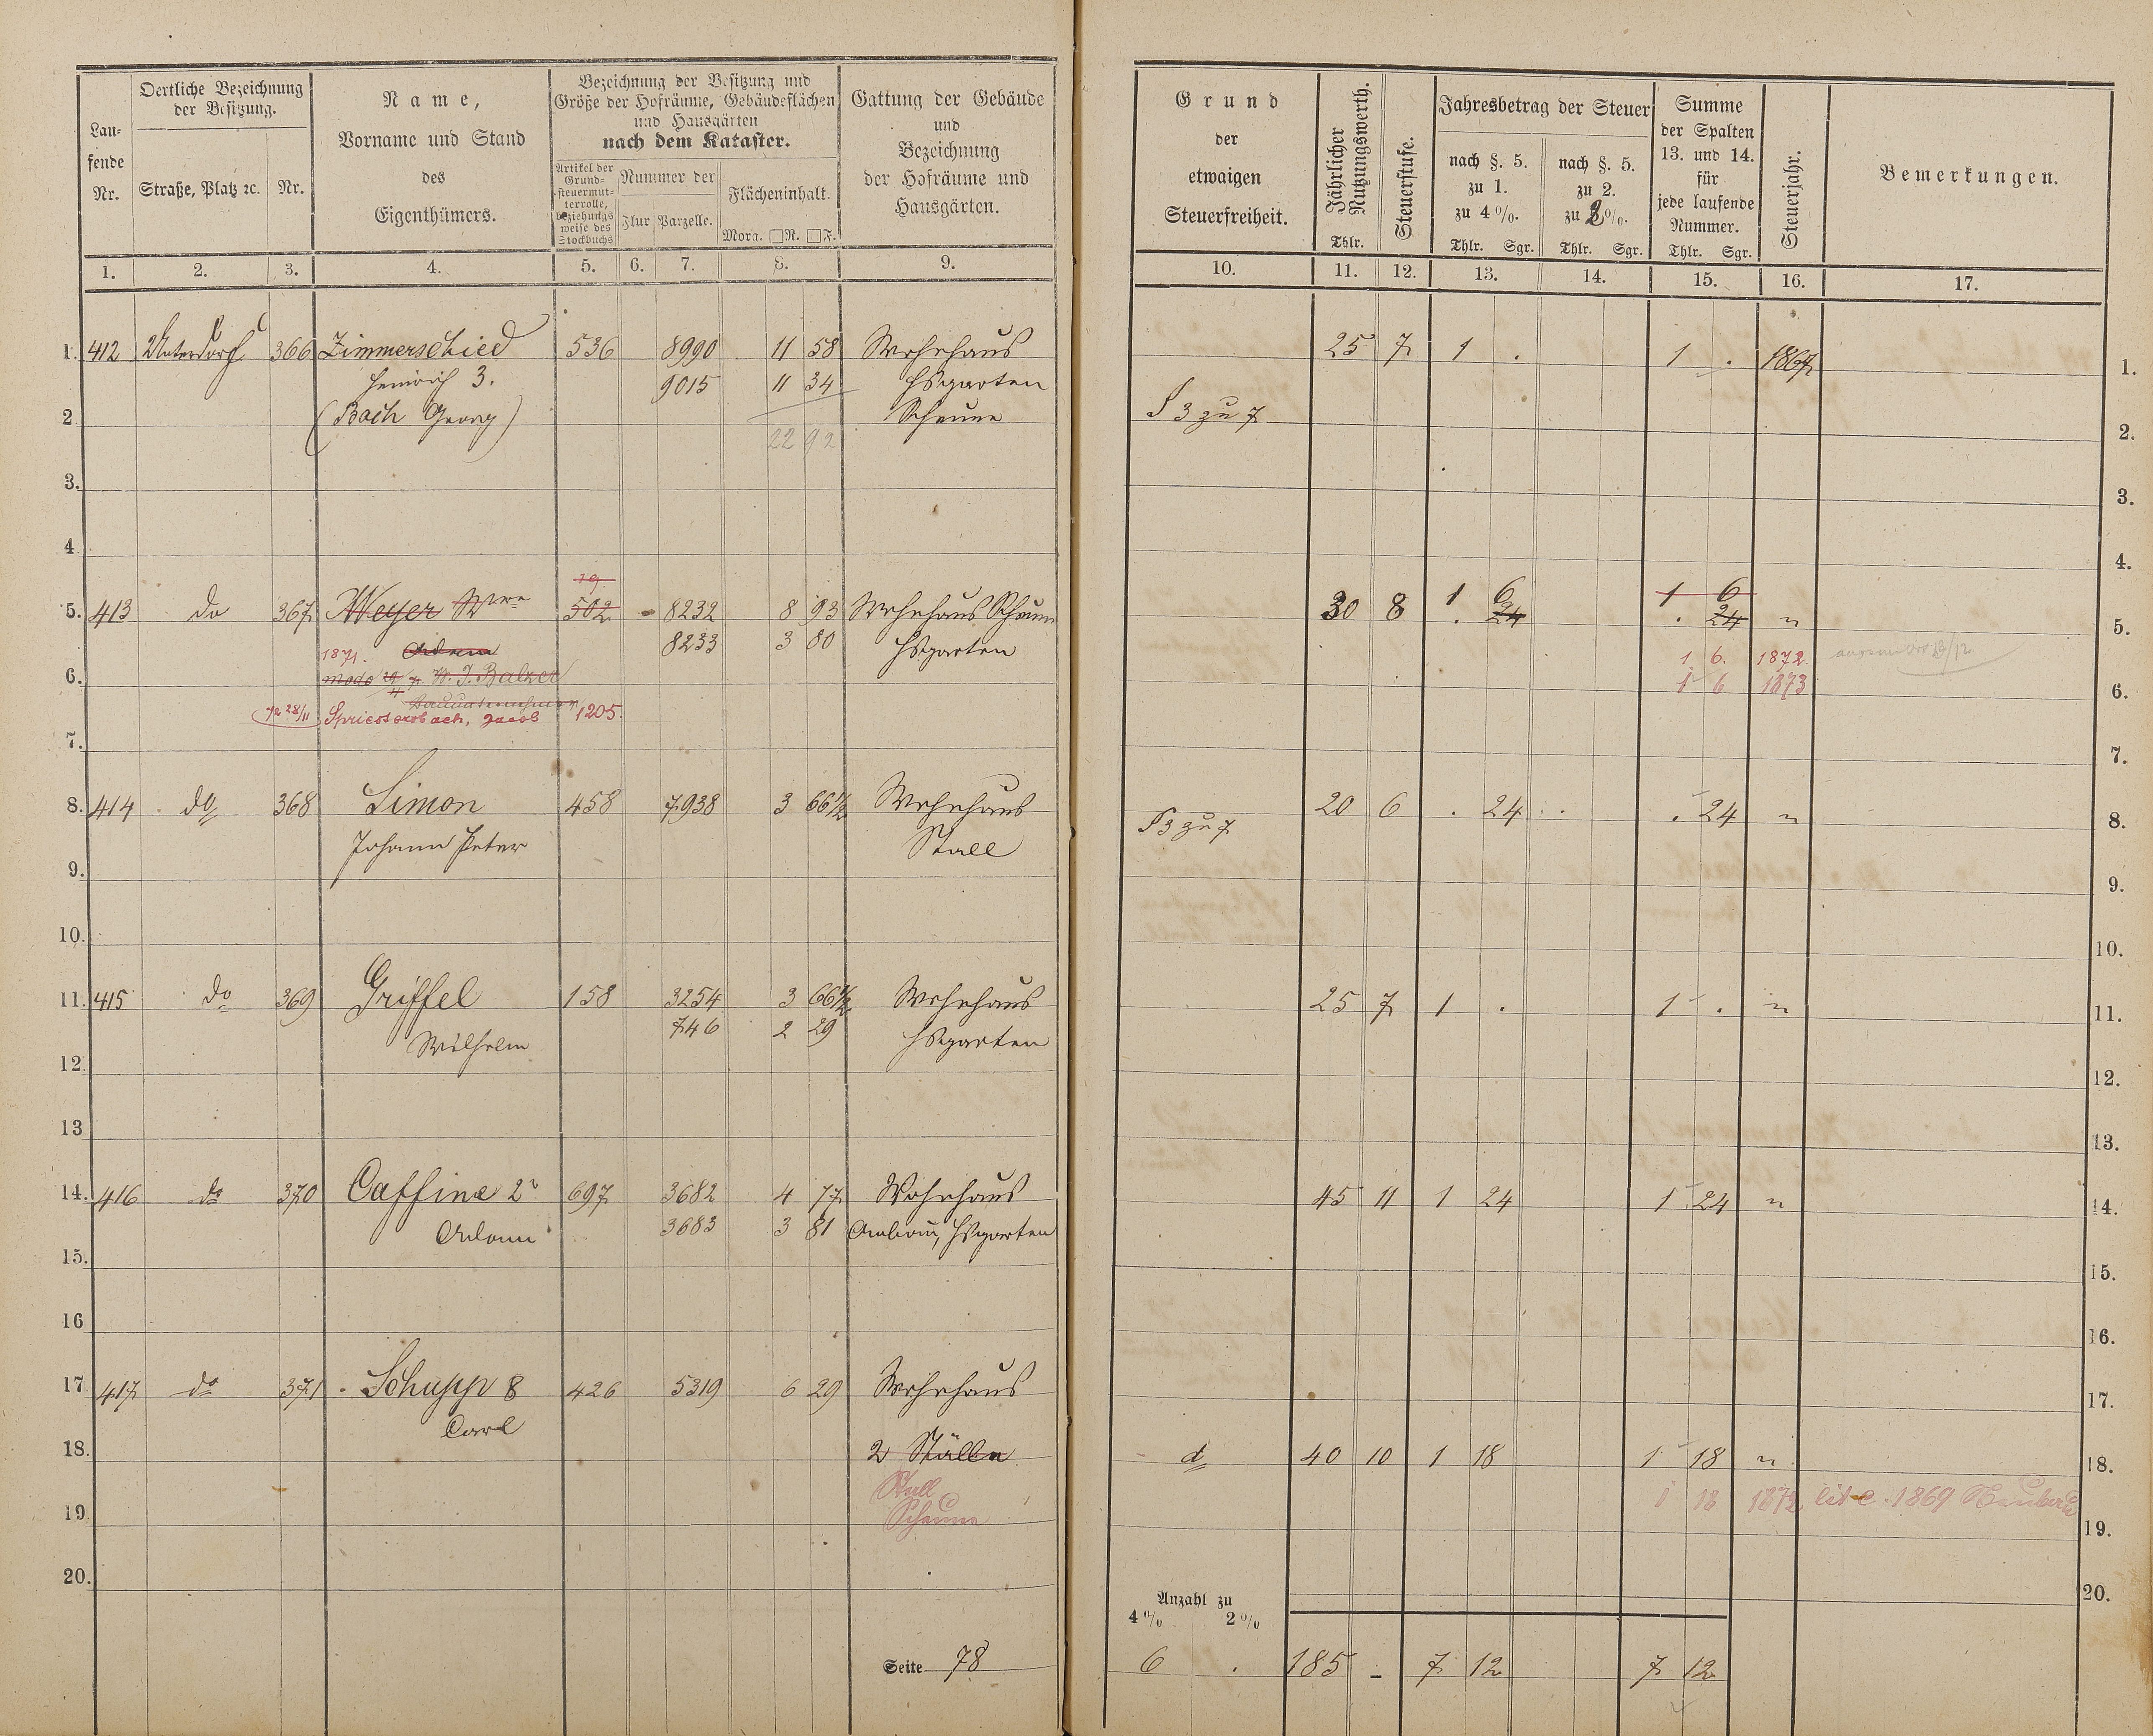 Laufende Nr.
Oertliche Bezeichnung der Besitzung.
Straße, Platz ꝛc.
Nr.
Name,
Vorname und Stand
des
Eigenthümers.
Bezeichnung der Besitzung und
Größe der Hofräume, Gebäudeflächen
und Hausgärten
nach dem Kataster.
Artikel der Grundsteuermutterrolle, beziehungsweise des Stockbuchs
Nummer der
Flur Parzelle.
Flächeninhalt.
Morg. □R. □F.
Gattung der Gebäude
und
Bezeichnung
der Hofräume und
Hausgärten.
1. 2. 3. 4. 5. 6. 7. 8. 9.
1. 412 Unterdorf 366 Zimmerschied 536 8990 11 58 Wohnhaus
Heinrich 3. 9015 11 34 Hsgarten
2. (Bach Georg) Scheune
22 92
3.
4.
19
5. 413 do 367 Meyer Wwe 502 8232 8 93 Wohnhaus Scheune
1871. Adam 8233 3 80 Hsgarten
6. modo W. J. Balzer
72 28/11 Spriestersbach, Jacob 1205.
7.
8. 414 do 368 Simon 458 7938 3 66½ Wohnhaus
Johann Peter Stall
9.
10.
11. 415 do 369 Griffel 158 3254 3 66½ Wohnhaus
Wilhelm 746 2 29 Hsgarten
12.
13.
14. 416 do 370 Caffine 2r 697 3682 4 77 Wohnhaus
Adam 3683 3 81 Anbau, Hsgarten
15.
16.
17. 417 do 371 Schupp 8 426 5319 6 29 Wohnhaus
Carl
18. 2 Ställe
Stall
19. Scheune
20.
Seite 78
Grund
der
etwaigen
Steuerfreiheit.
Jährlicher Nutzungswerth.
Thlr.
Steuerstufe.
Jahresbetrag der Steuer
nach §. 5.
zu 1.
zu 4%.
Thlr. Sgr.
nach §. 5.
zu 2.
zu 2%.
Thlr. Sgr.
Summe
der Spalten
13. und 14.
für
jede laufende
Nummer.
Thlr. Sgr.
Steuerjahr.
Bemerkungen.
10. 11. 12. 13. 14. 15. 16. 17.
25 7 1 . 1 . 1867 1.
§ 3 zu 7 2.
3.
4.
1 6 1 6
30 8 . 24 . 24 " 5.
1 6. 1872
1 6 1873 6.
7.
§ 3 zu 7 20 6 . 24 . 24 " 8.
9.
10.
25 7 1 . 1 . " 11.
12.
13.
45 11 1 24 1 24 " 14.
15.
16.
17.
do 40 10 1 18 1 18 " 18.
1 18 1872 lit c. 1869 Neubau
19.
20.
Anzahl zu
4% 2%
6 . 185 - 7 12 7 12